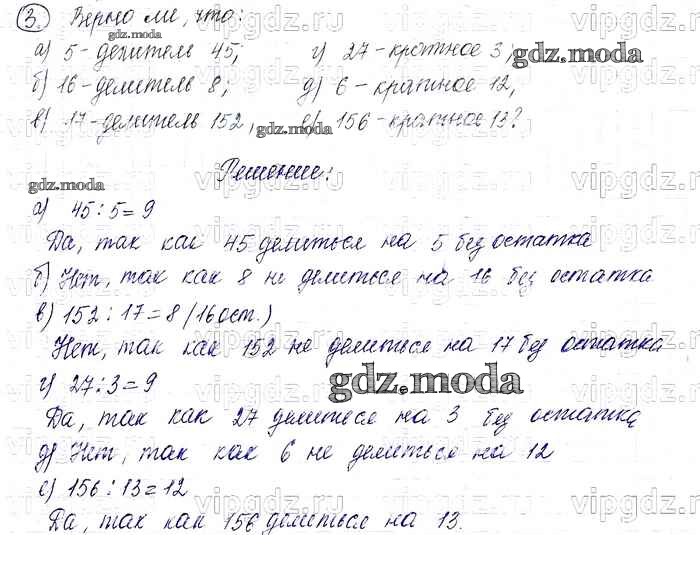 3. Верно ли, что:
а) 5 - делитель 45; г) 27 - кратное 3;
б) 16 - делитель 8; д) 6 - кратное 12,
в) 17 - делитель 152, е) 156 - кратное 13?
Решение:
а) 45 : 5 = 9
Да, так как 45 делиться на 5 без остатка
б) Нет, так как 8 не делиться на 16 без остатка
в) 152 : 17 = 8 (16 ост.)
Нет, так как 152 не делиться на 17 без остатка
г) 27 : 3 = 9
Да, так как 27 делиться на 3 без остатка
д) Нет, так как 6 не делиться на 12
е) 156 : 13 = 12
Да, так как 156 делиться на 13.
gdz.moda
gdz.moda
gdz.moda
gdz.moda
gdz.moda
vipgdz.ru